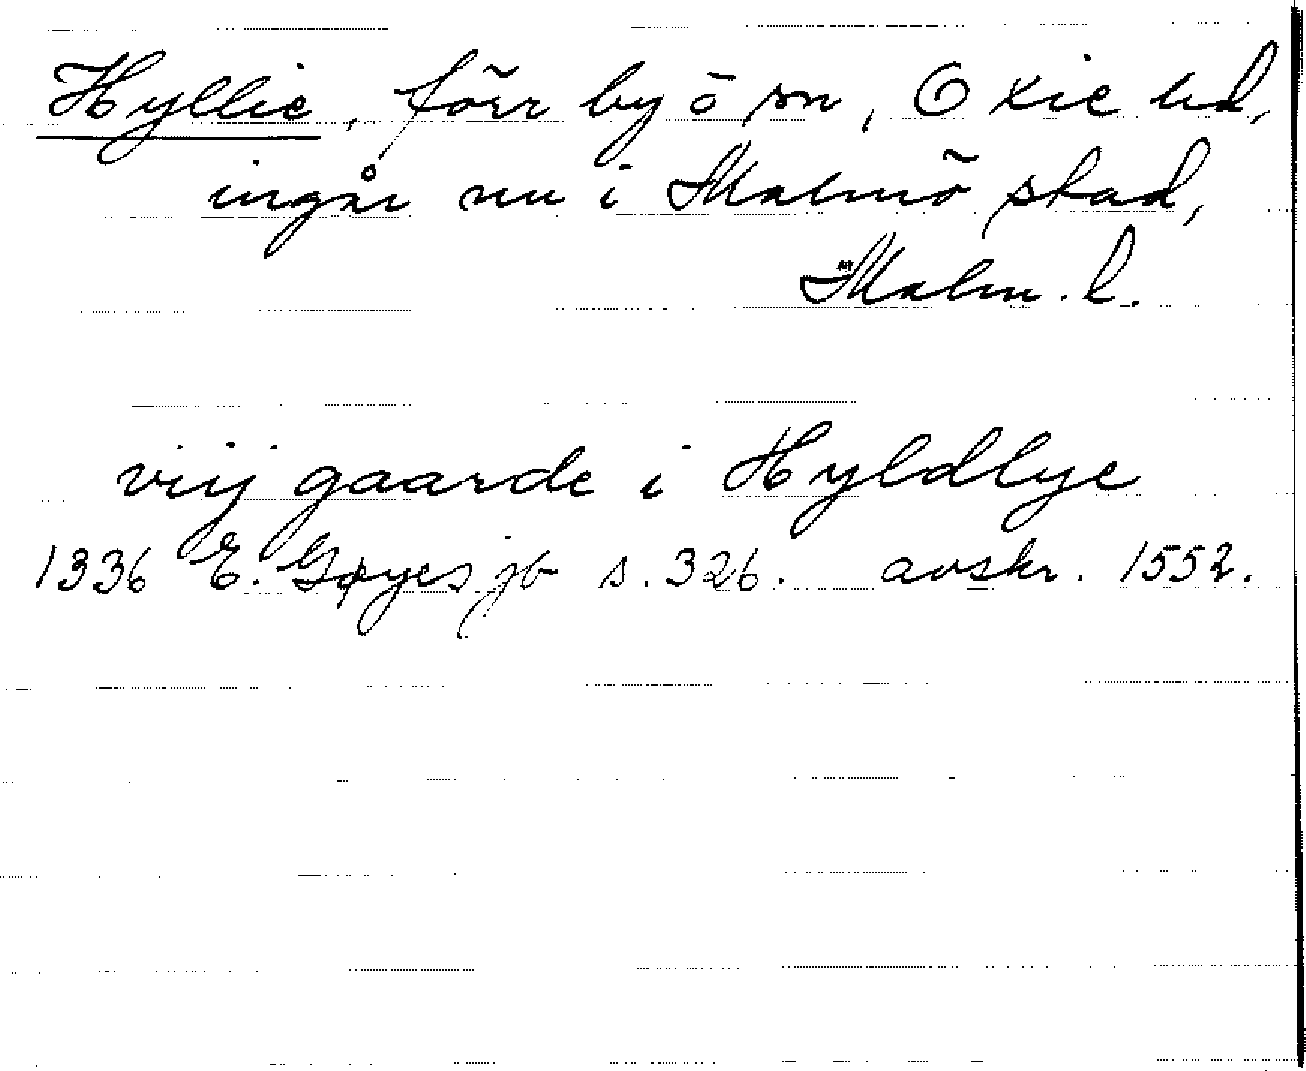 Hyllie, förr by o sn, Oxie hd,
ingår nu i Malmö stad,
Malm. l.
viij gaarde i Hyldlye
1336 E. Gøyes jb s. 326. avskr. 1552.